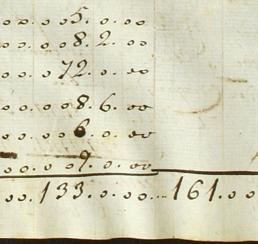 ..o..o5.o.oo
..o..o8.2.oo
..o..o72.o.oo
..o..o8.6.oo
..o..o6.o.oo
..o..o9.o.oo
oo.133.o.oo...161.o.o